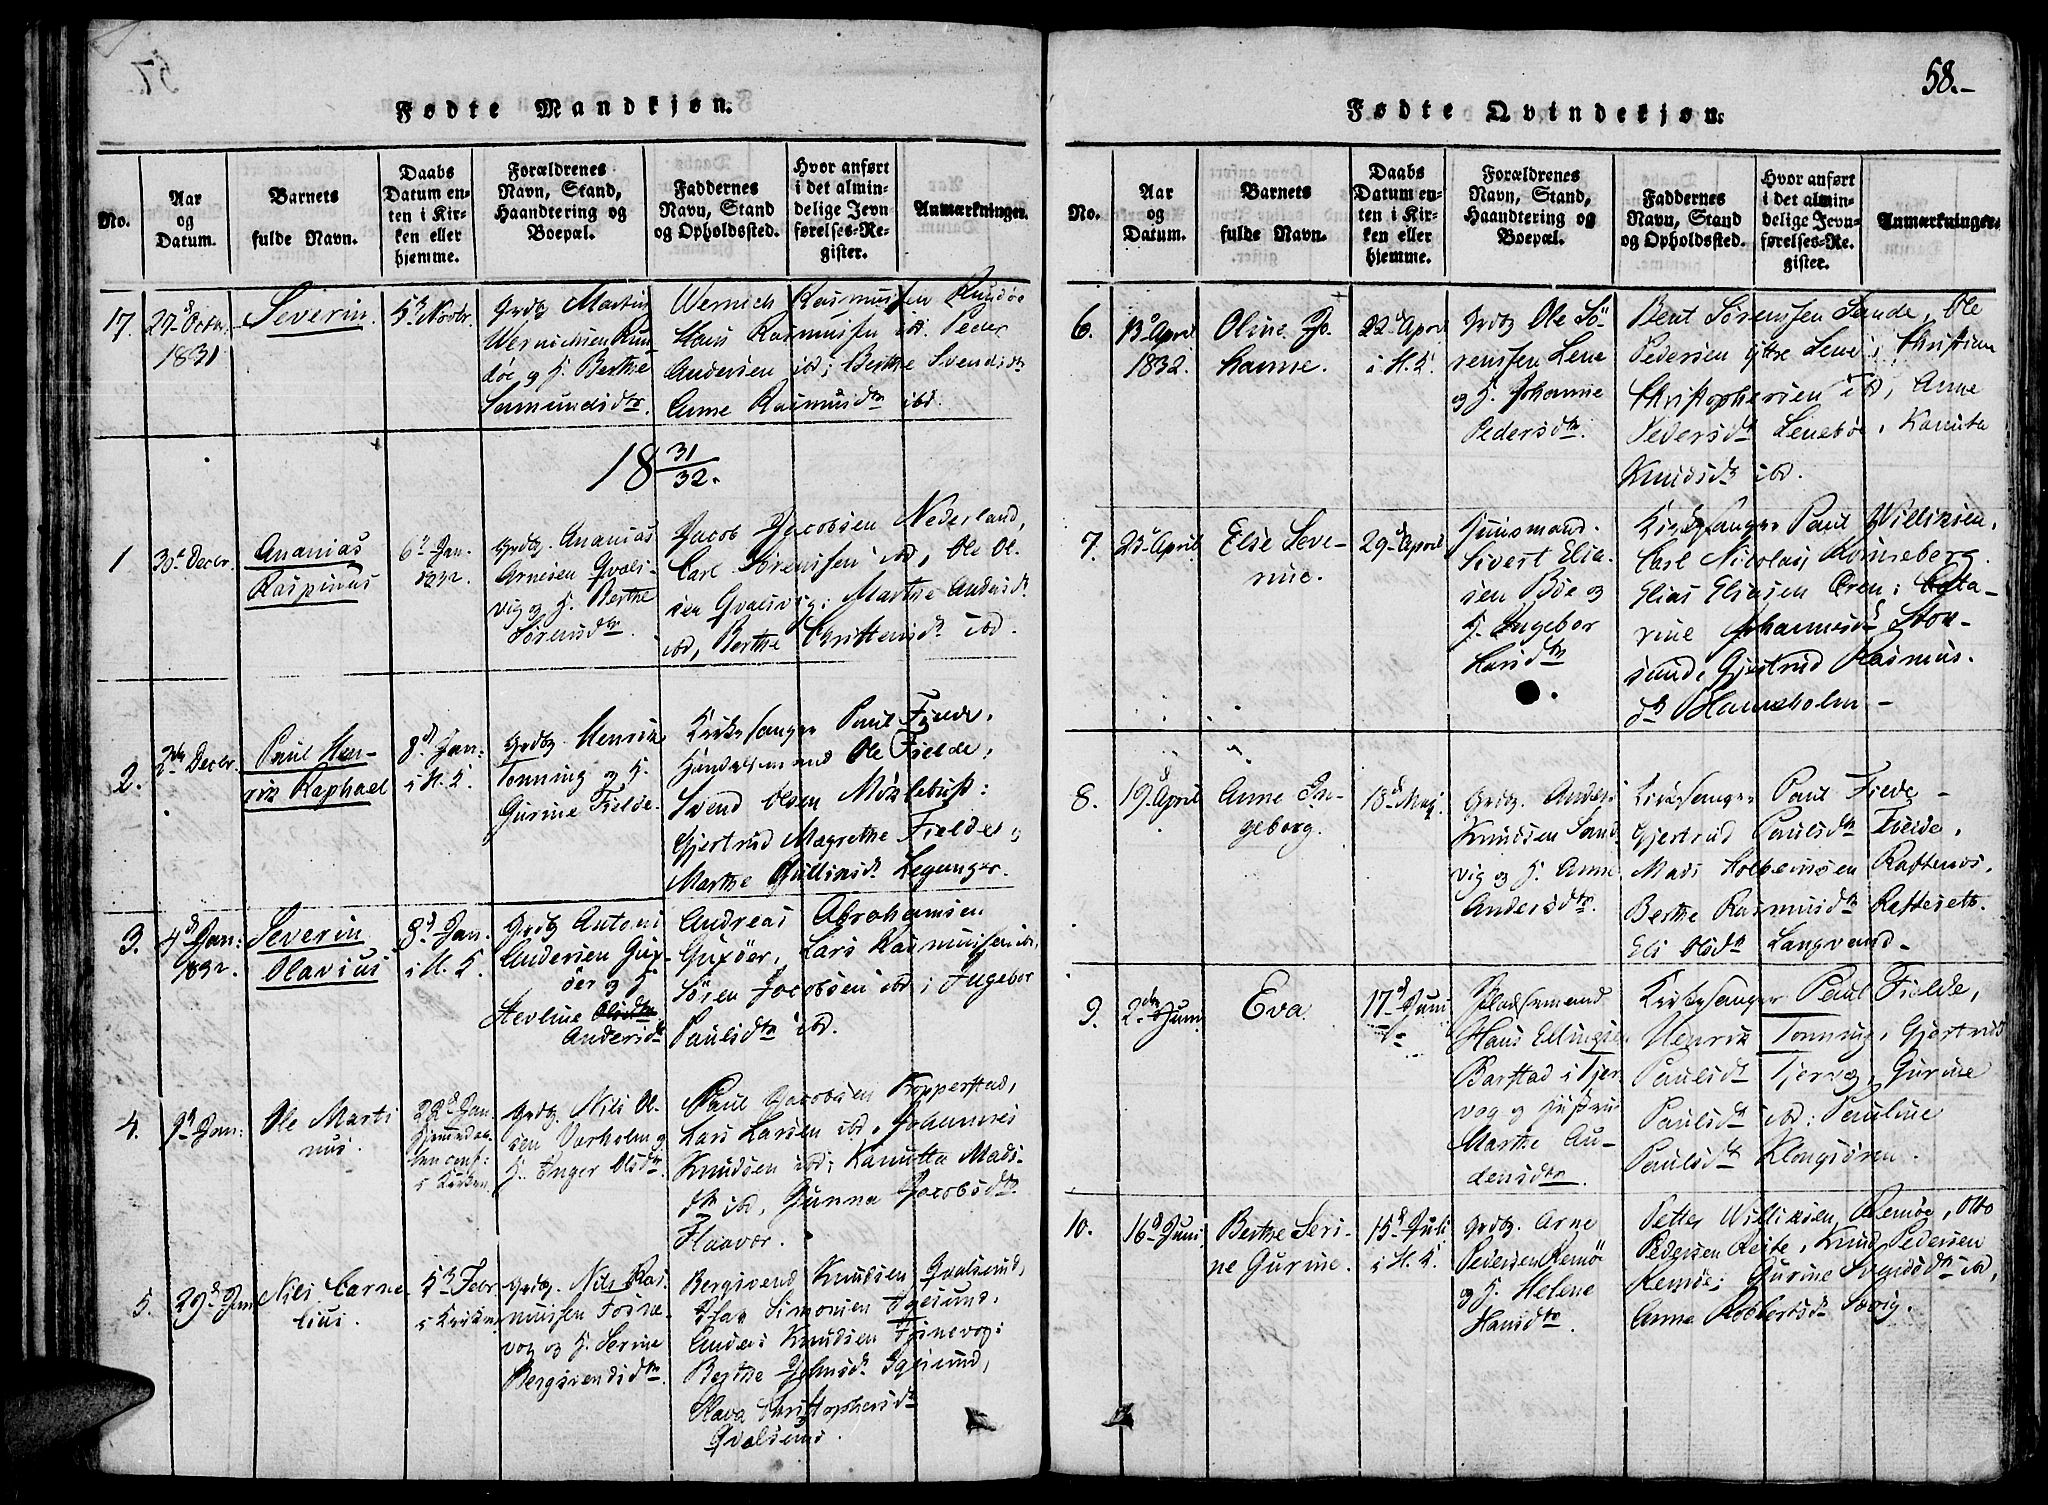 58.-
Fødte Mandkjøn.
No.
Aar
og
Datum.
Barnets
fulde Navn.
Daabs
Datum en-
ten i Kir-
ken eller
hjemme.
Forældrenes
Navn, Stand,
Haandtering og
Boepæl.
Faddernes
Navn, Stand
og Opholdssted.
Hvor anført
i det almin-
delige Jevn
førelses-Re-
gister.
Anmærkninger.
17.
27d Octbr.
1831
Severin.
5d Novbr.
Grdbr. Martin
Wernichsen Run-
døe og H. Berthe
Samundsdtr.
Wernich Rasmussen Rundøe
Hans Rasmussen ibd. Peder
Andersen ibd; Berthe Svendsdtr
Anne Rasmusdtr ibd.
18 31/32.
1
30d Decbr.
Ananias
Raspinus
6d Jan.
1832.
Grdbr. Ananias
Arnesen Qvals-
vig og H. Berthe
Sørensdtr.
Jacob Jacobsen Nederland,
Carl Sørensen ibd, Ole Ol-
sen Qvalsvig; Marthe Andersdtr.
ibd, Berthe Christensdtr ibd.
2.
Decbr.
Paul Hen-
rik Raphael
8d Jan:
i H. K.
Grdbr. Henrik
Tonning og H.
Gurine Fielde.
Kirkesanger Paul Fielde,
Handelsmand Ole Fielde,
Svend Olsen Møklebust:
Gjertrud Magrethe Fielde og
Marthe Gulliksdtr. Leganger.
3.
4d Jan:
1832.
Severin
Olavius
8d Jan.
i H. K.
Grdbr Antoni
Andersen Gux-
øer og H
Hevline Olsdtr
Andersdtr
Andreas Abrahamsen
Guxøer, Lars Rasmussen ibd,
Søren Jacobsen ibd; Ingebor
Paulsdtr ibd.
4.
9d Jan:
Ole Marti
nus.
22d Jan.
hjemmedøbt
conf:
i Kirken.
Grdbr. Nils Ol-
sen Varholm og
H. Inger Olsdtr
Paul Jacobsen Kopperstad,
Lars Larsen ibd, Johannes
Knudsen ibd; Kanutta Mads-
dtr ibd, Gunna Jacobsdtr
Flaavær.
5.
29d Jan
Nils Corne
lius.
5d Febr
i Kirken
Grdbr. Nils Ras
mussen Fosna-
vog og H. Serine
Bergsvendsdtr.
Bergsvend Knudsen Qvalsund,
Simonsen Igesund,
Anders Knudsen Fosnevog;
Berthe Johnsdtr. Igesund,
Christophersdtr
Qvalsund.
Fødte Qvindekjøn.
No.
Aar
og
Datum.
Barnets
fulde Navn.
Daabs
Datum en-
ten i Kir-
ken eller
hjemme.
Forældrenes
Navn, Stand,
Haandtering og
Boepæl.
Faddernes
Navn, Stand
og Opholdssted.
Hvor anført
i det almin-
delige Jevn
førelses-Re.
gister.
Anmærkninger.
6.
13d April
1832.
Oline Jo-
hanne.
22d April
i H. K.
Grdbr Ole Sö-
rensen Lene
og H. Johanne
Pedersdtr.
Bent Sørensen Sande, Ole
Pedersen ytre Lene; Christiane
Christophersen ibd, Anne
Pedersdtr Lenebøe, Kanuta
Knudsdtr ibd.
7.
23d April
Else Seve-
rine.
29d April
Huusmand
Sivert Elia-
sen Bøe og
H. Ingebor
Hansdtr
Kirkesanger Paul Willixsen,
Carl Nicolai Rønneberg
Elias Eliasen Ören; Cata-
rine Johannesdtr Stor-
sund, Gjertrud Rasmus-
dtr Hansholm -
8.
19d April
Anne In-
geborg.
18d Maj.
Grdbr. Anders
Knudsen Sand
vig og H. Anne
Andersdtr.
Kirkesanger Paul Fielde -
Gjertrud Paulsdtr Fielde,
Mads Raftnes,
Berthe Rasmusdtr Refteseth.
Eli Olsdtr Langvand -
9.
2den Juni
Eva
17d Juni
Pladsemand
Hans Ellingsen
Barstad i Tjer
vog og Hustru
Marthe Au-
densdtr.
Kirkesanger Paul Fielde,
Henrik Tonning, Gjertrud
Paulsdtr Tjervog, Gurine
Paulsdtr ibd: Pauline
Paulsdtr Klongsören.
10.
16d Juni
Berthe Seri-
ne Gurine.
15d Juli
i H. K.
Grdbr. Arne
Pedersen Remö
og H. Helene
Hansdtr.
Petter Willixsen, Remøe, Otto
Pedersen Reite, Knud Pedersen
Remøe; Gurine Svendsdtr ibd,
Anna Robbertsdtr Sævig.